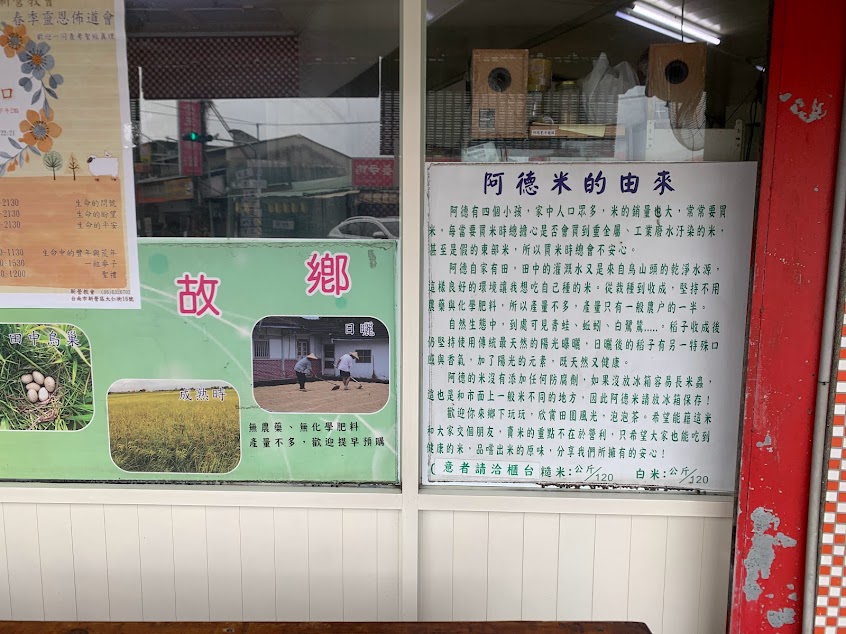 新營教會
春季靈恩佈道會
口
-2130 生命的問號
-2130 生命的盼望
-2130 生命的平安
-1130 生命中的豐年與荒年
-1530
-1200 聖禮
新營教會
台南市新營區大仁街18號
故鄉
田中鳥巢
成熟時
日曬
無農藥、無化學肥料
產量不多,歡迎提早預購
阿德米的由來
阿德有四個小孩,家中人口眾多,米的銷量也大,常常要買
米,每當要買米時總擔心是否會買到重金屬、工業廢水汙染的米,
甚至是假的東部米,所以買米時總會不安心。
阿德自家有田,田中的灌溉水又是來自烏山頭的乾淨水源,
這樣良好的環境讓我想吃自己種的米。從栽種到收成,堅持不用
農藥與化學肥料,所以產量不多,產量只有一般農户的一半。
自然生態中,到處可見青蛙、蚯蚓、白鷺鷥.....,稻子收成後
仍堅持使用傳統最天然的陽光曝曬,日曬後的稻子有另一特殊口
感與香氣,加了陽光的元素,既天然又健康。
阿德的米沒有添加任何防腐劑,如果沒放冰箱容易長米蟲,
這也是和市面上一般米不同的地方,因此阿德米請放冰箱保存!
歡迎你來鄉下玩玩,欣賞田園風光,泡泡茶。希望能藉這米
和大家交個朋友,賣米的重點不在於營利,只希望大家也能吃到
健康的米,品嚐出米的原味,分享我們所擁有的安心!
意者請洽櫃台 糙米:公斤/120 白米:公斤/120